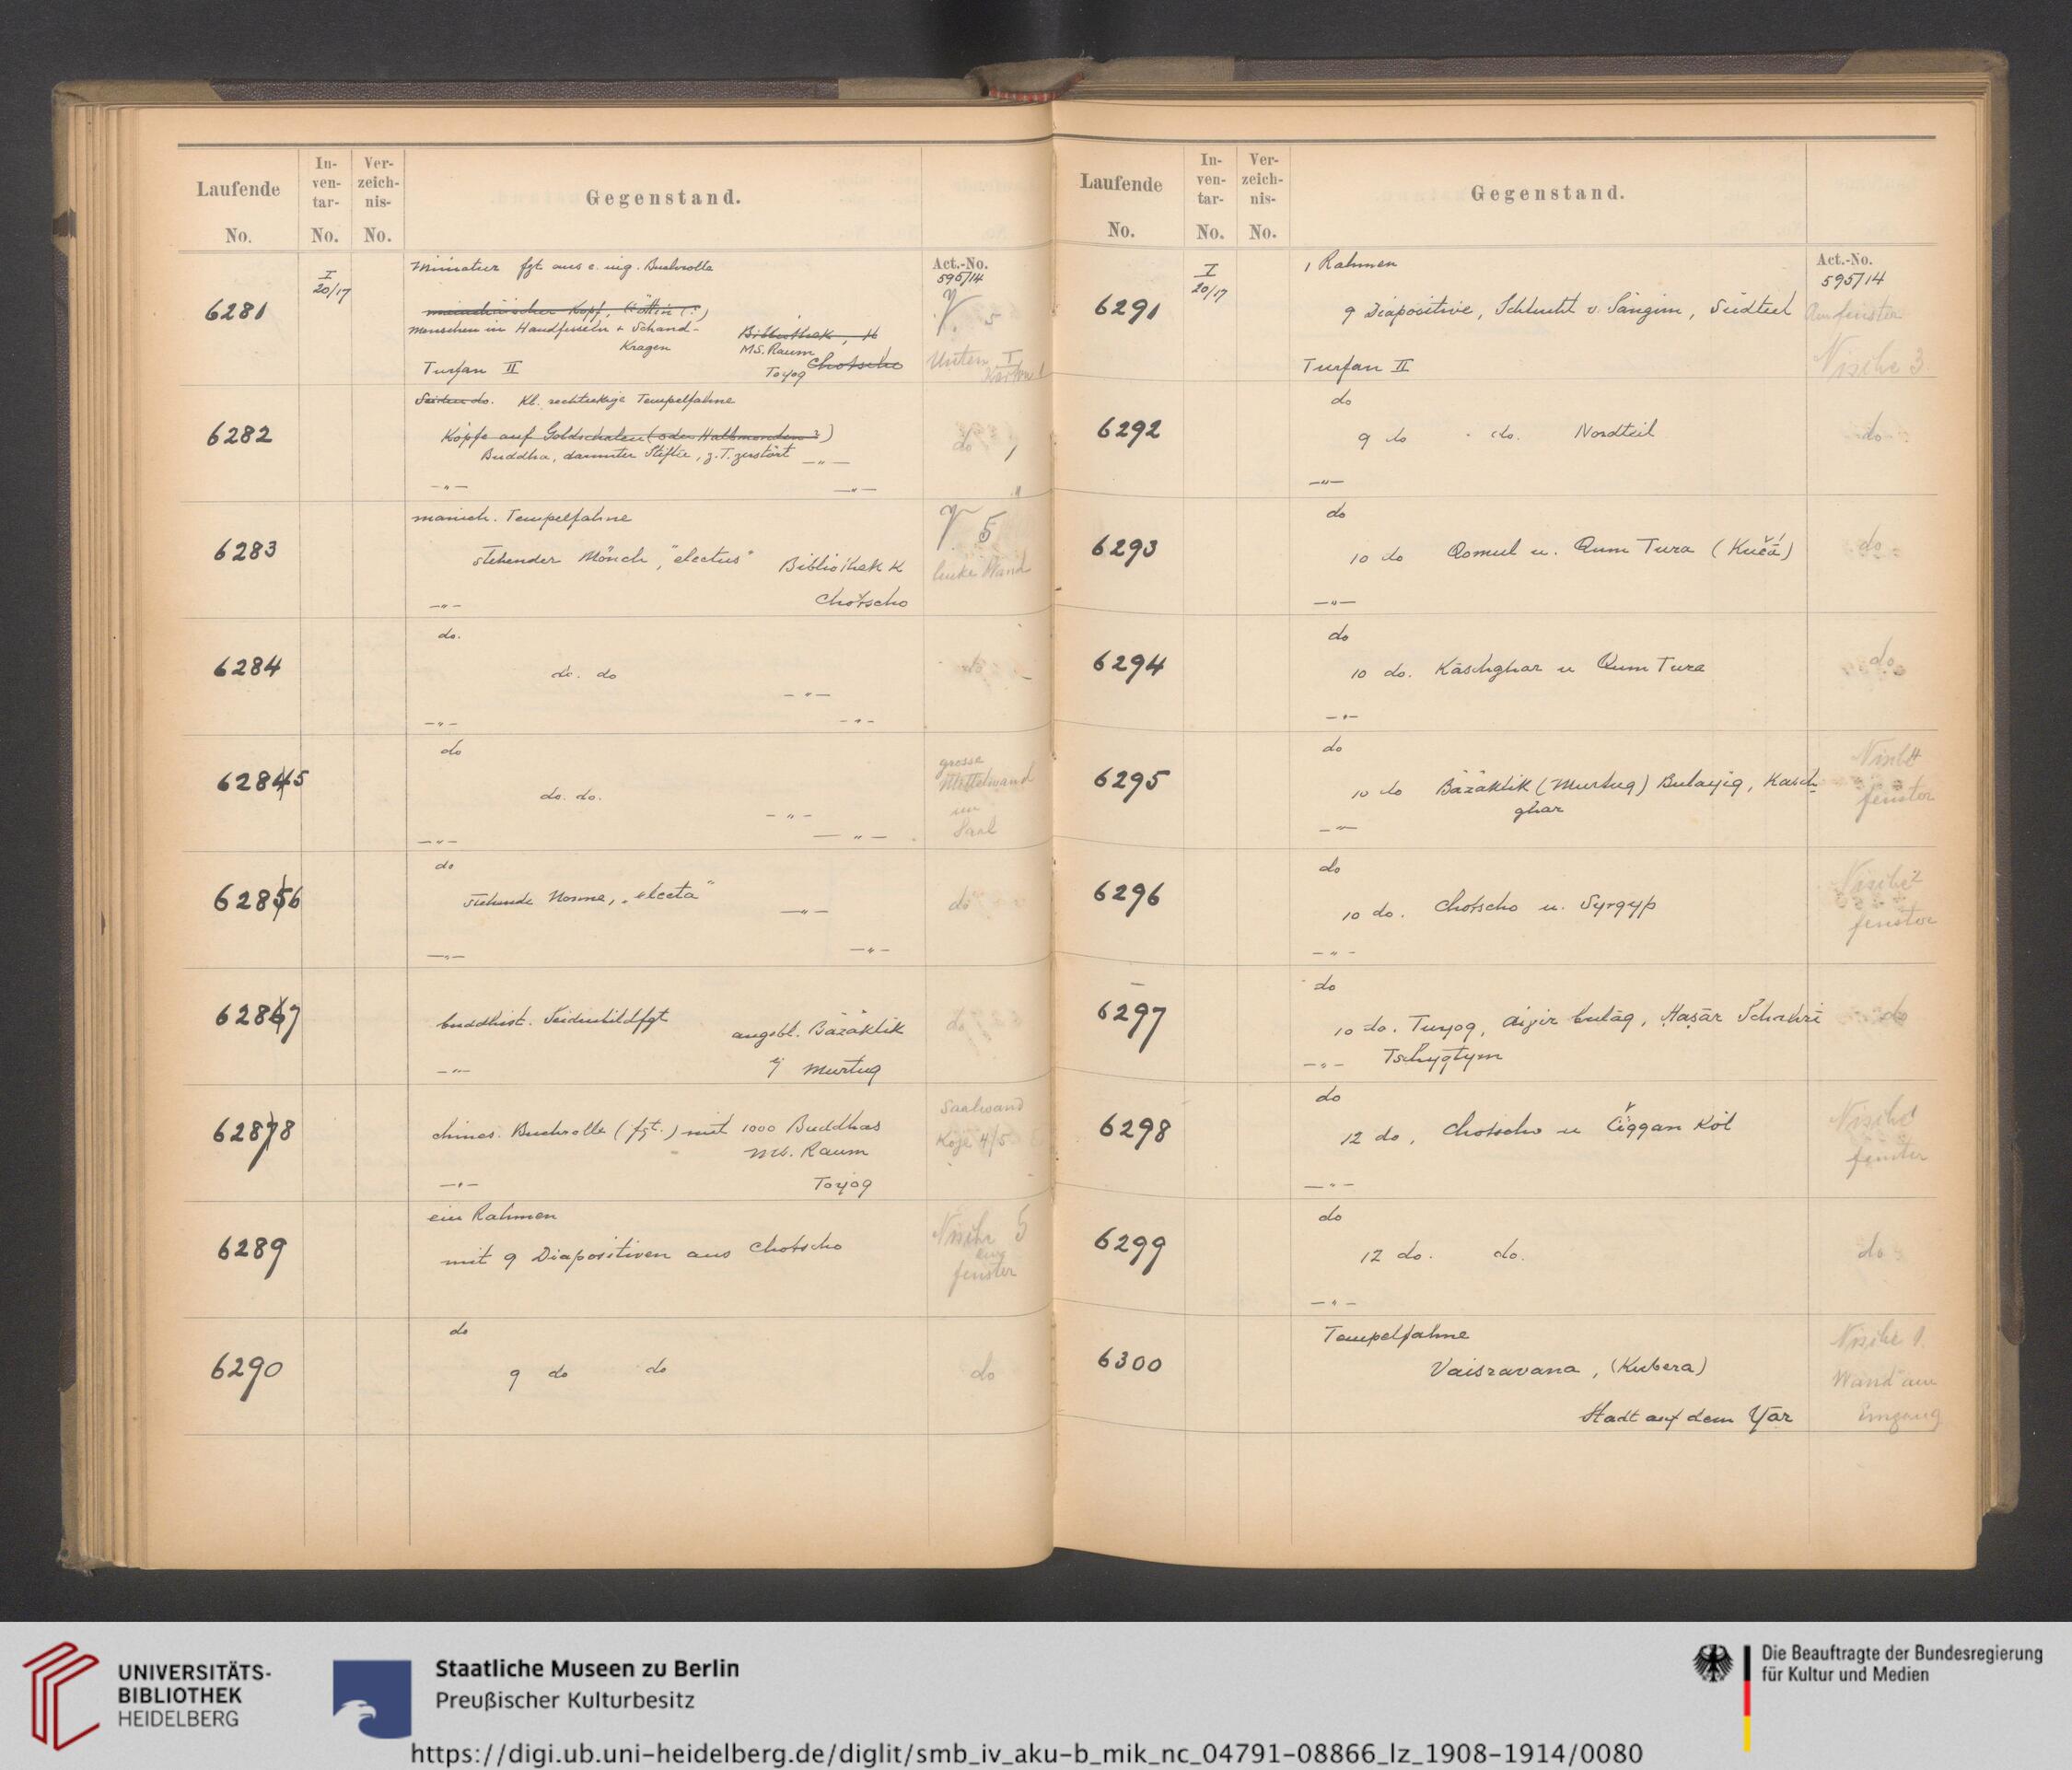 Laufende
No.
In-
ven-
tar-
No.
Ver-
zeich-
nis-
No.
Gegenstand.
Act.-No.
595/14
I
20/17
6281
Miniatur fgt aus e. uig. Buchrolle
manichäischer Kopf, Göttin (?)
Menschen in Handfesseln + Schand-
Kragen
Bibliothek, K
MS. Raum
Turfan II
Toyog Chotscho
V. 5
Unten I
Karton 1
6282
Seiden do. Kl. rechteckige Tempelfahne
Köpfe auf Goldschalen (oder Halbmonden?)
Buddha, darunter Stifter, z.T. zerstört —"—
—"— —"—
do
6283
manich. Tempelfahne
stehender Mönch, "electus" Bibliothek K
—"— Chotscho
V. 5
linke Wand
6284
do.
do. do
—"—
—"— —"—
do
62845
do
do. do.
—"—
—"— —"—
grosse
Mittelwand
im
Saal
62856
do
stehende Nonne, "electa" —"—
—"— —"—
do
62867
buddhist. Seidenbildfgt
angebl. Bäzäklik
—"— b/ Murtuq
do
62878
chines. Buchrolle (fgt.) mit 1000 Buddhas
MS. Raum
—"— Toyog
Saalwand
Koje 4/5
6289
ein Rahmen
mit 9 Diapositiven aus Chotscho
Nische 5
fenster
6290
do
9 do do
do
Laufende
No.
In-
ven-
tar-
No.
Ver-
zeich-
nis-
No.
Gegenstand.
Act.-No.
595/14
I
20/17
6291
1 Rahmen
9 Diapositive, Schlucht v. Sängim, Südteil
Turfan II
Nische 3
6292
do
9 do do. Nordteil
—"—
do
6293
do
10 do Qomul u. Qum Tura (Kučā)
—"—
do
6294
do
10 do. Kāschghar u Qum Tura
—"—
do
6295
do
10 do Bäzäklik (Murtuq) Bulayiq, Kasch-
ghar
—"—
Nische
fenster
6296
do
10 do. Chotscho u. Syrgyp
—"—
Nische 2
fenster
6297
do
10 do. Tuyog, Aiyir bulāg, Haṣār Schahri
—"— Tschyqtym
do
6298
do
12 do, Chotscho u Čiggan Köl
—"—
Nische
fenster
6299
do
12 do. do.
—"—
do
6300
Tempelfahne
Vaisravana, (Kubera)
Stadt auf dem Yar
Nische 1.
Wand am
Eingang
UNIVERSITÄTS-
BIBLIOTHEK
HEIDELBERG
Staatliche Museen zu Berlin
Preußischer Kulturbesitz
Die Beauftragte der Bundesregierung
für Kultur und Medien
https://digi.ub.uni-heidelberg.de/diglit/smb_iv_aku-b_mik_nc_04791-08866_lz_1908-1914/0080